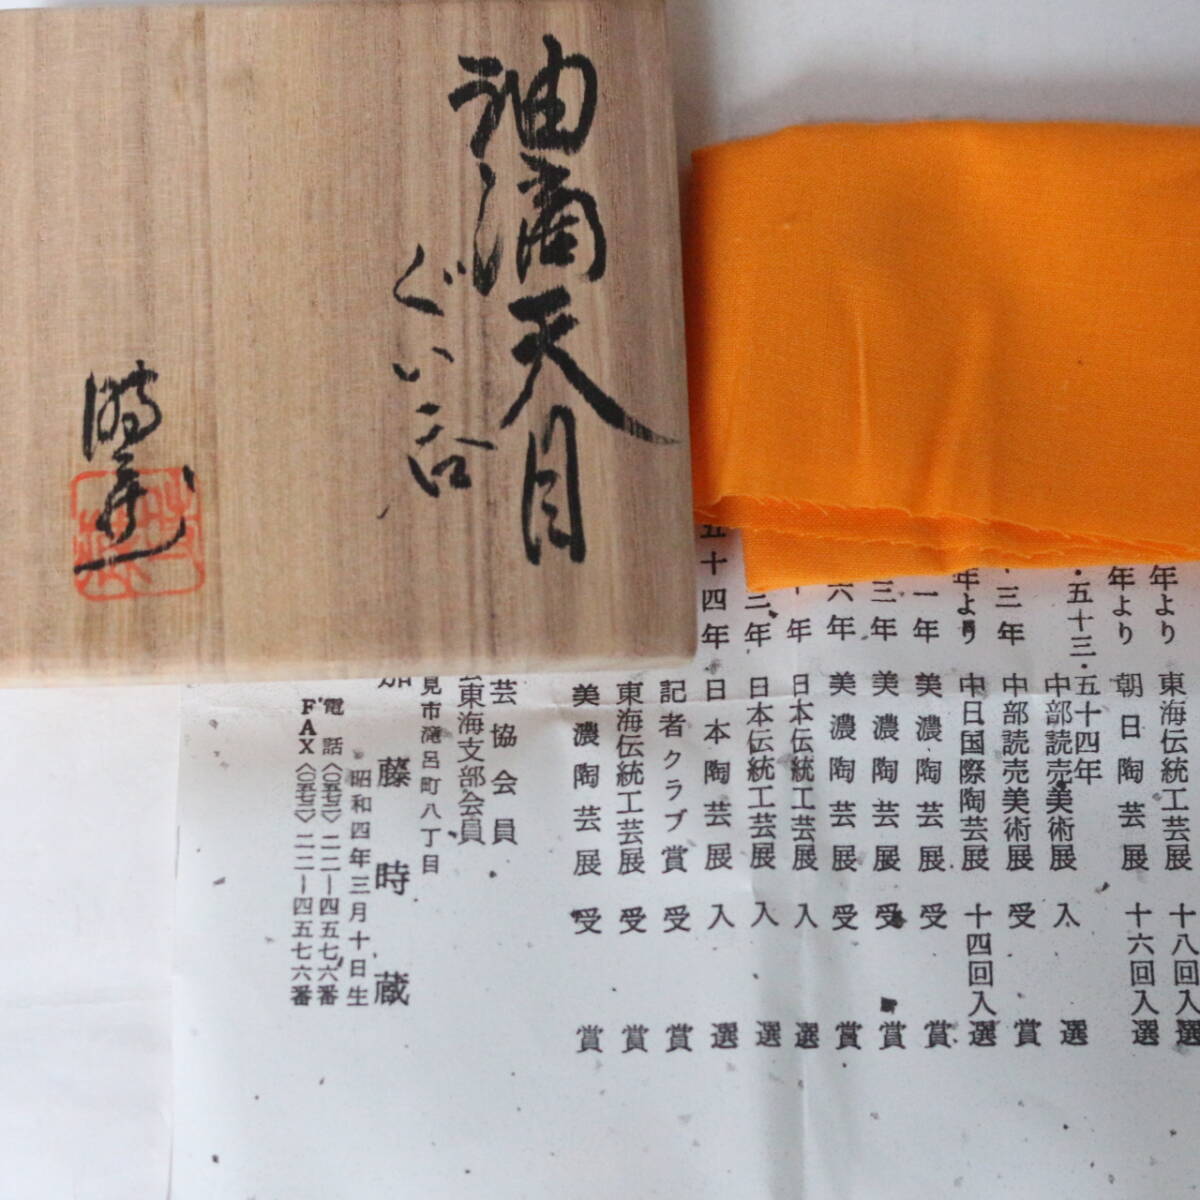 油滴天目
ぐい呑
時蔵
年より 東海伝統工芸展 十八回入選
年より 朝日陶芸展 十六回入選
・五十三・五十四年 中部読売美術展 入選
三年 中部読売美術展 受賞
年より 中日国際陶芸展 十四回入選
一年 美濃陶芸展 受賞
三年 美濃陶芸展 受賞
六年 美濃陶芸展 受賞
年 日本伝統工芸展 入選
三年 日本伝統工芸展 入選
五十四年 日本陶芸展 入選
記者クラブ賞 受賞
東海伝統工芸展 受賞
美濃陶芸展 受賞
芸協会員
東海支部会員
見市滝呂町八丁目
加藤時蔵
昭和四年三月十日生
電話〈〇五七二〉二二―四五七六番
FAX〈〇五七二〉二二―四五七六番